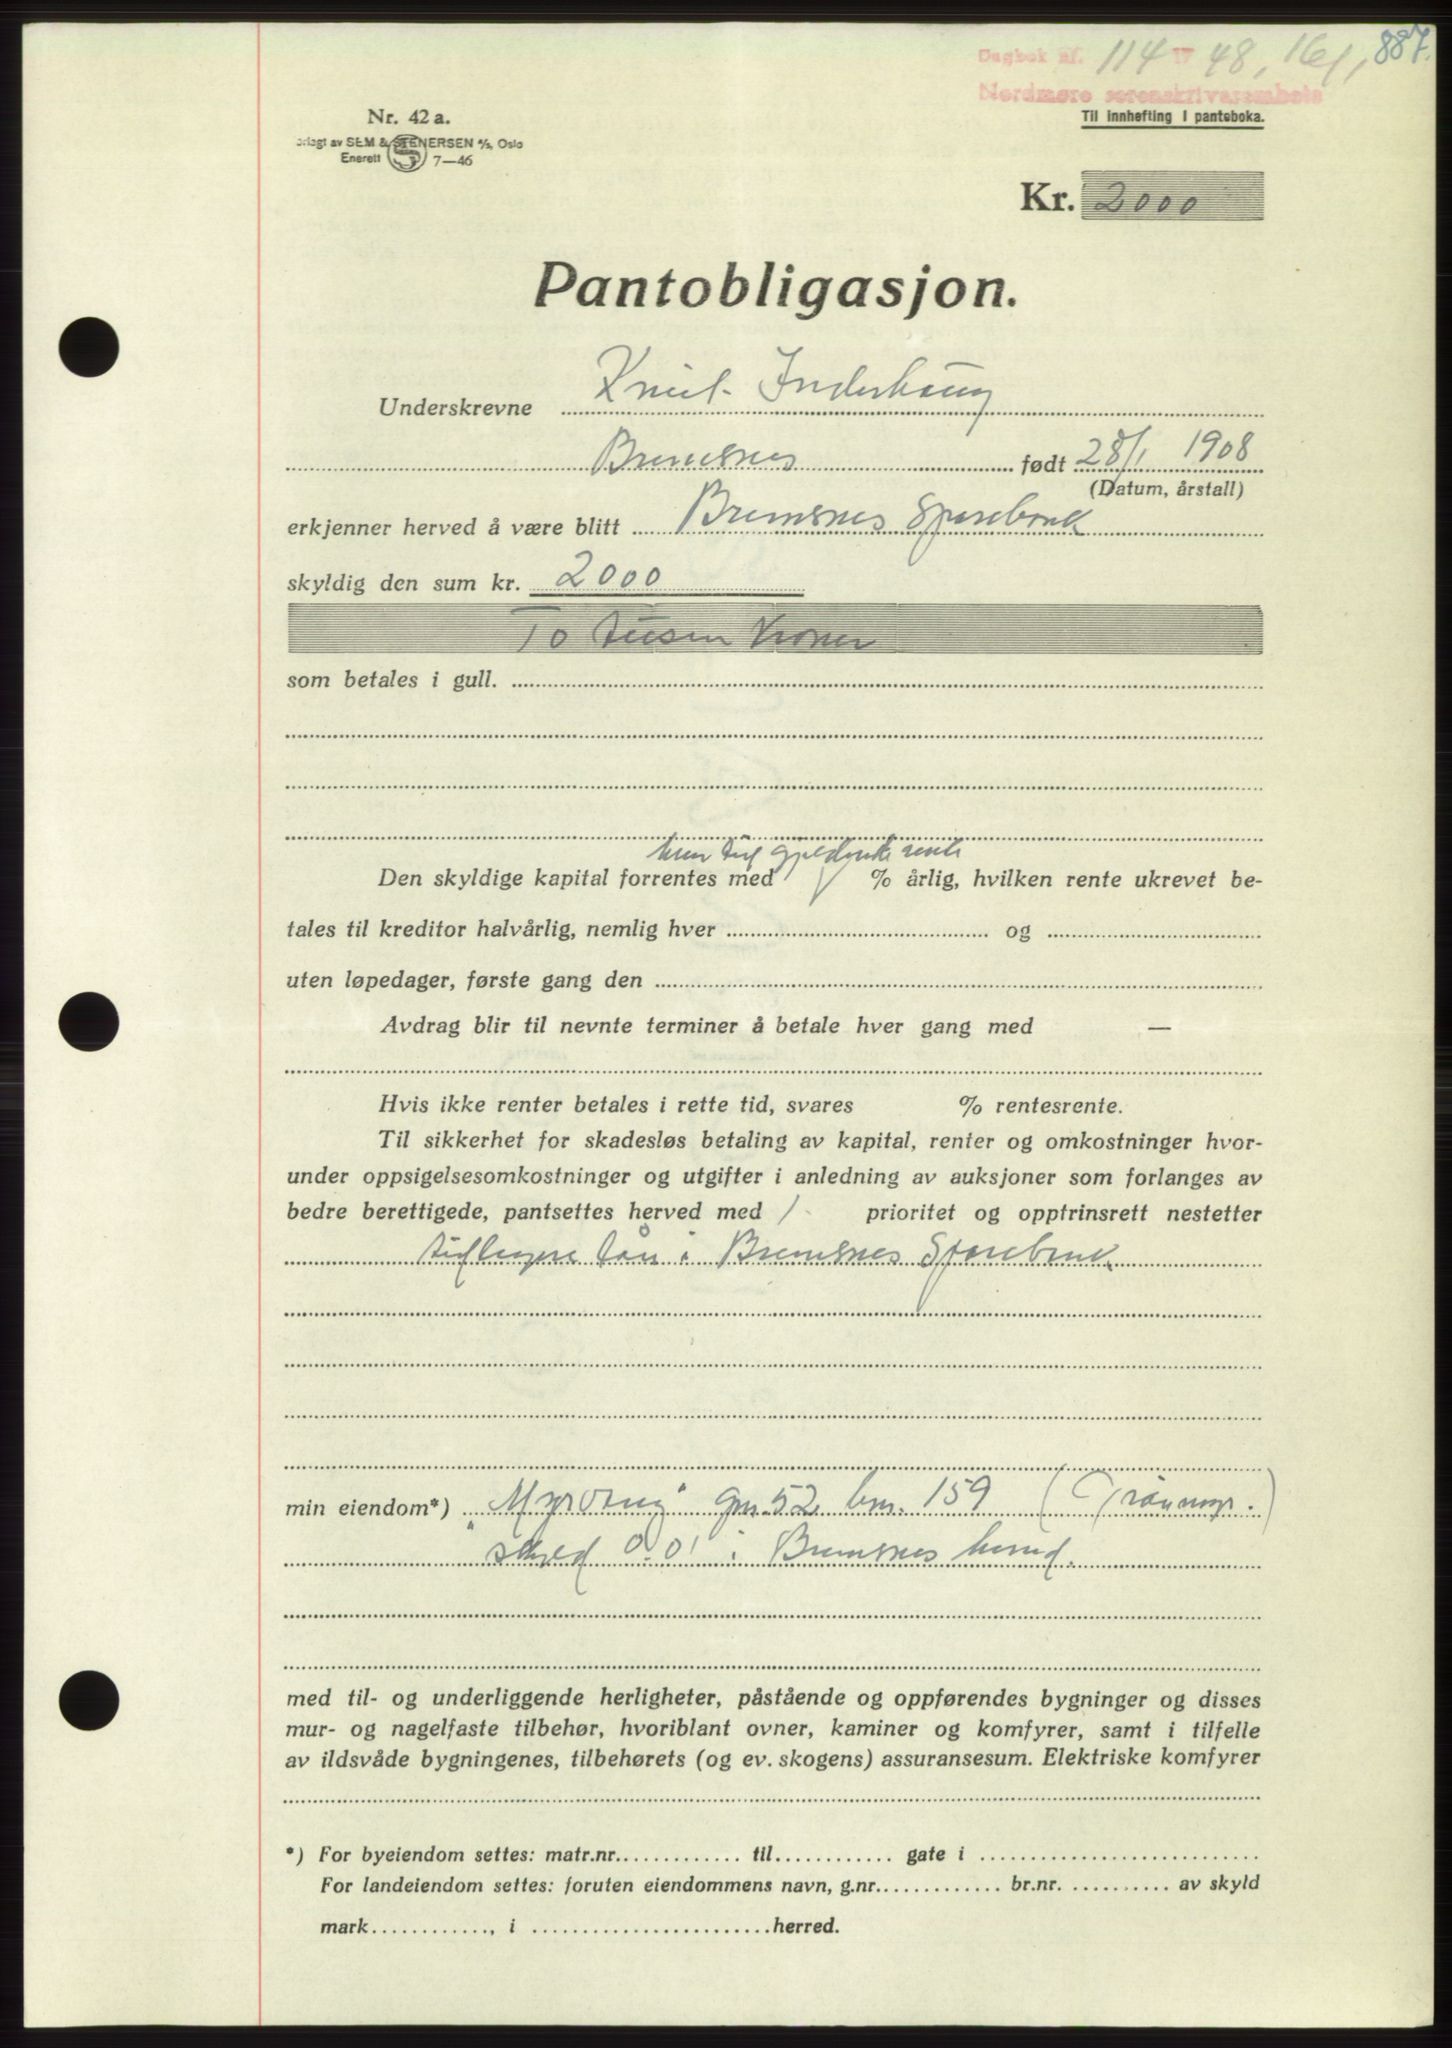 887.
Dagbok nr. 114 48, 161,
Nordmøre sorenskrivarembete
Til innhefting i panteboka.
Nr. 42 a.
orlagt av SEM & STENERSEN A/S, Oslo
Enerett 7—46
Kr. 2000
Pantobligasjon.
Underskrevne Knut Inderhaug
Bremsnes født 28/1 1908
(Datum, årstall)
erkjenner herved å være blitt Bremsnes Sparebank
skyldig den sum kr. 2000
To tusen kroner
som betales i gull.
hver tid gjeldende rente
Den skyldige kapital forrentes med % årlig, hvilken rente ukrevet be-
tales til kreditor halvårlig, nemlig hver og
uten løpedager, første gang den
Avdrag blir til nevnte terminer å betale hver gang med —
Hvis ikke renter betales i rette tid, svares % rentesrente.
Til sikkerhet for skadesløs betaling av kapital, renter og omkostninger hvor-
under oppsigelsesomkostninger og utgifter i anledning av auksjoner som forlanges av
bedre berettigede, pantsettes herved med 1 prioritet og opptrinsrett nestetter
tidligere lån i Bremsnes Sparebank.
min eiendom*) "Myrvang" gnr. 52 bnr. 159
skyld 0.01 i Bremsnes herred.
med til- og underliggende herligheter, påstående og oppførendes bygninger og disses
mur- og nagelfaste tilbehør, hvoriblant ovner, kaminer og komfyrer, samt i tilfelle
av ildsvåde bygningenes, tilbehørets (og ev. skogens) assuransesum. Elektriske komfyrer
*) For byeiendom settes: matr.nr. til gate i
For landeiendom settes: foruten eiendommens navn, g.nr. br.nr. av skyld
mark , i herred.